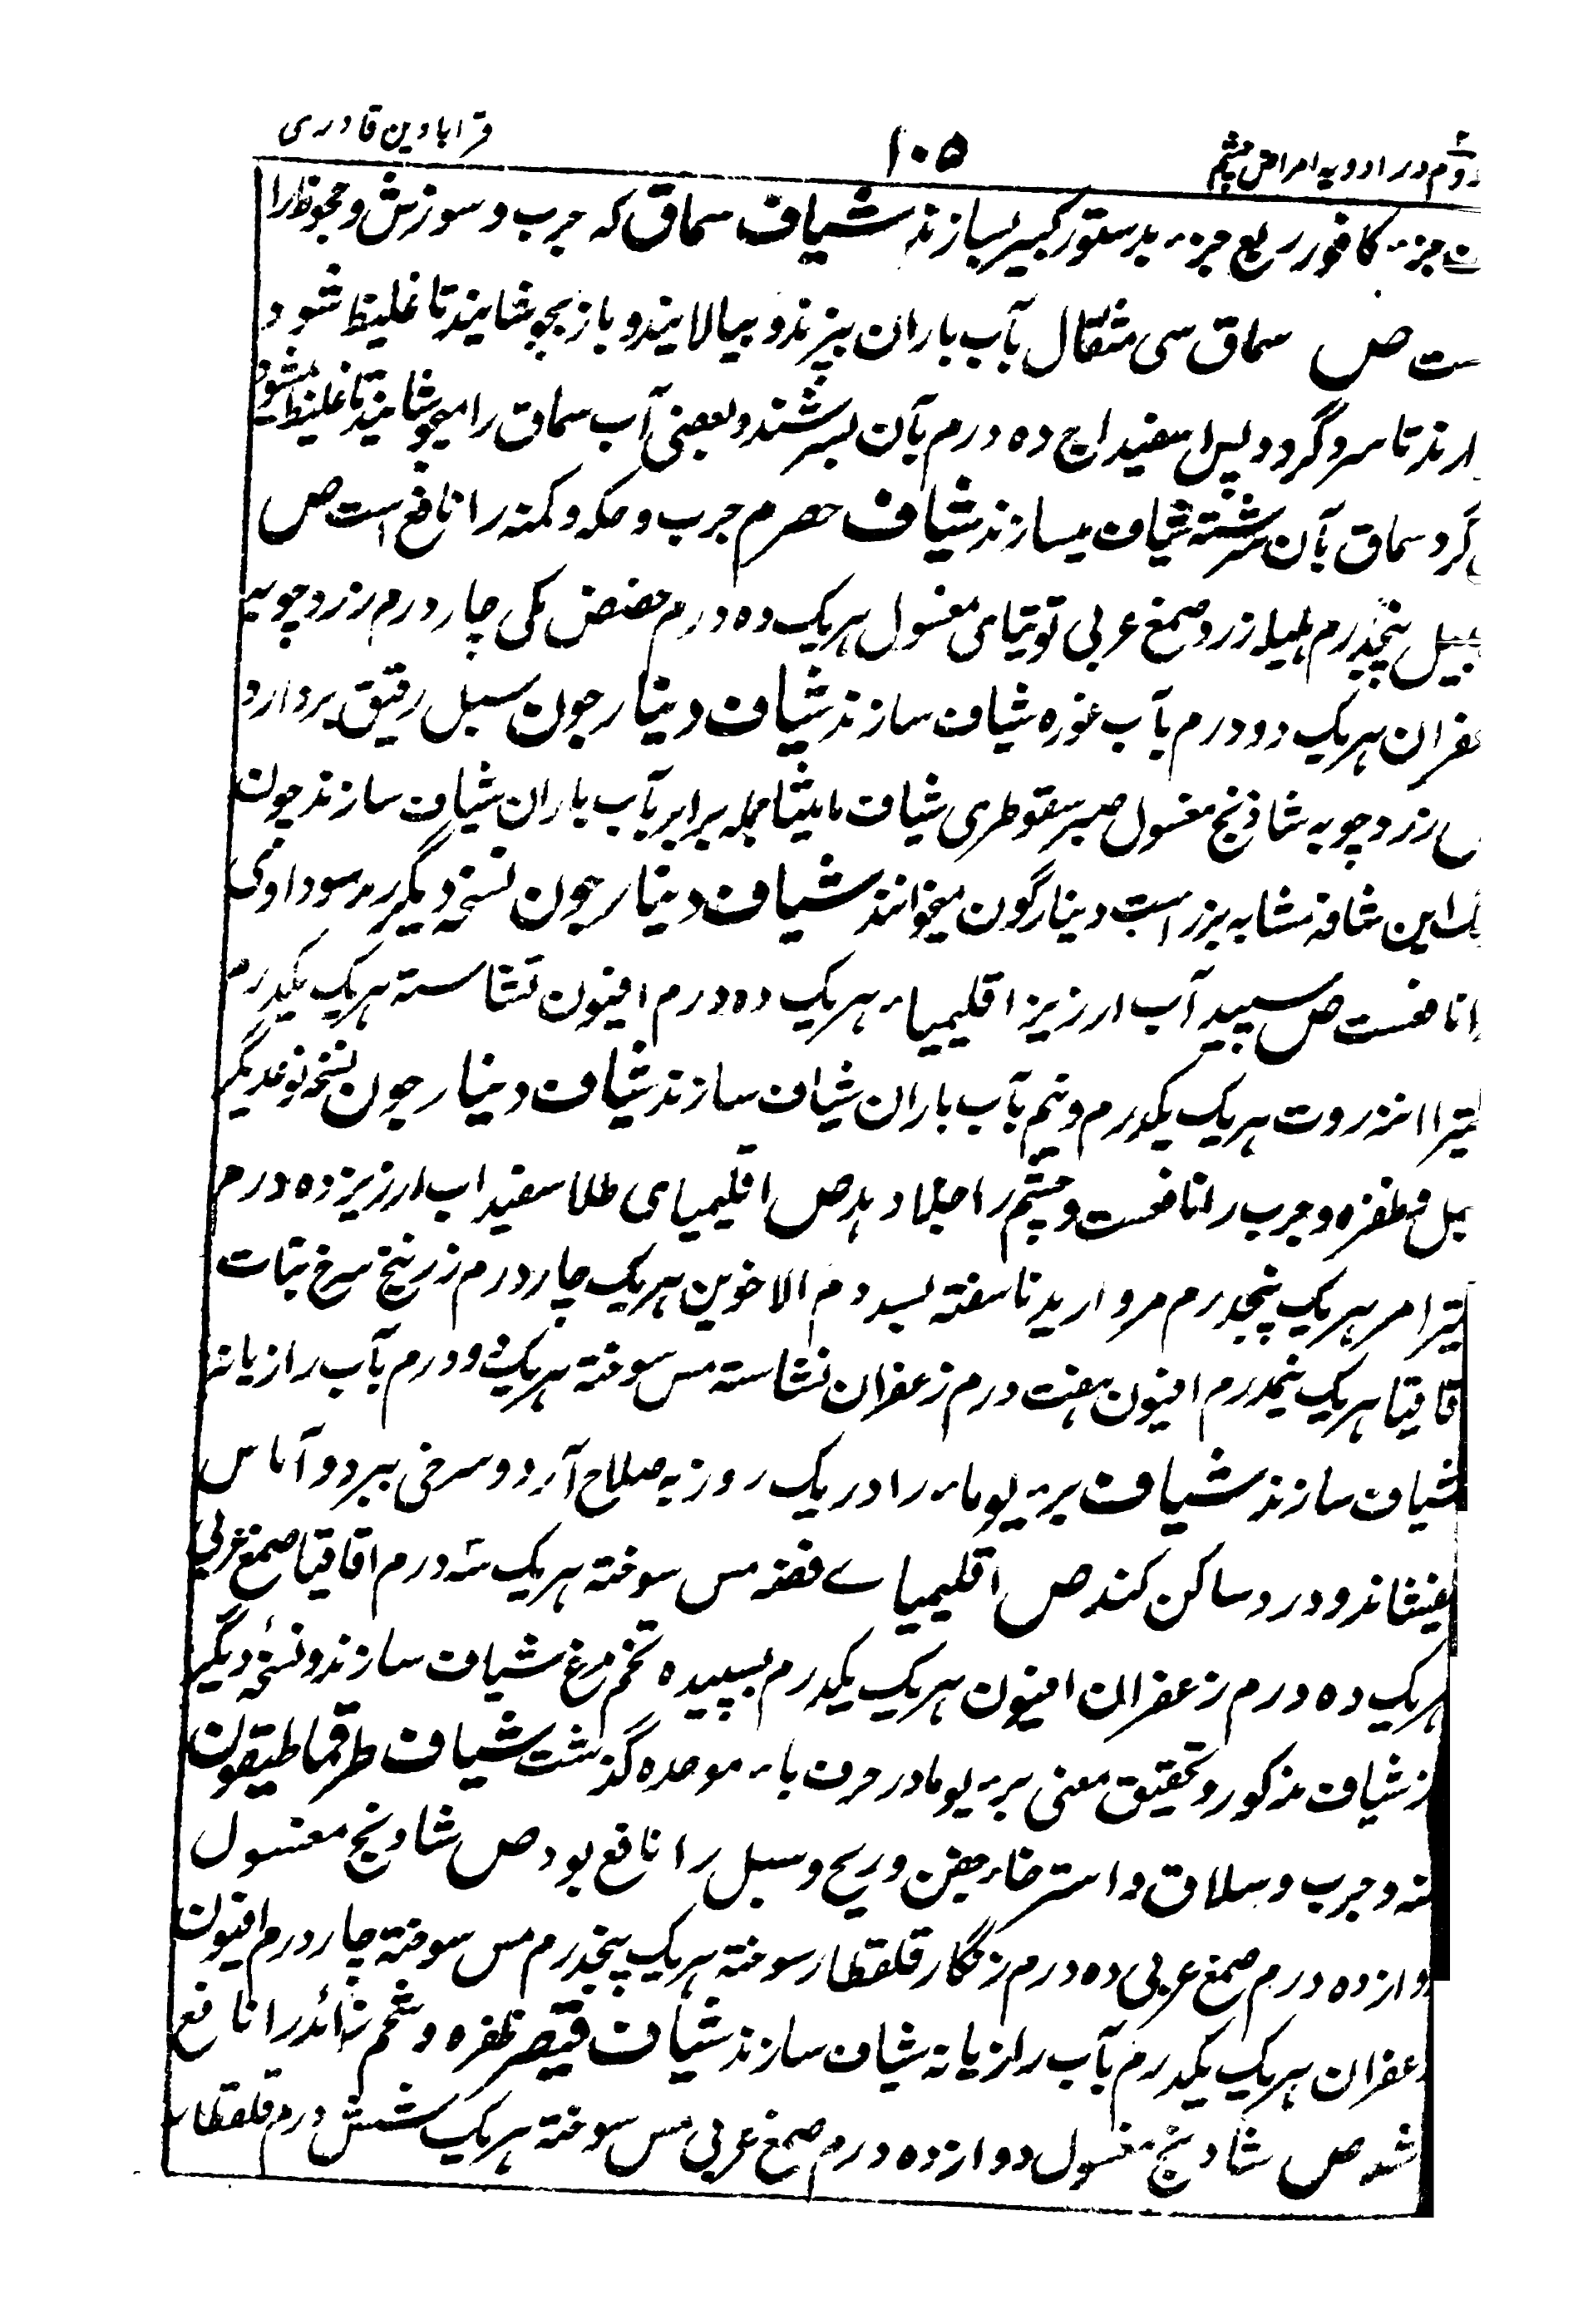 دوم در ادویه امراض چشم ۱۰۵ قرابادین قادری
جزء کافور ربع جزء بدستور کبیر بسازند شیاف سماق که جرب و سوزش و جحوظ را
ست ص سماق سی مثقال بآب باران بپزند و بپالایند و باز بجوشانند تا غلیظ شود
ارند تا سرد گردد پس اسفیداج ده درم بآن بسرشند و بعضی آب سماق را میجوشانند تا غلیظ میشود
گرد سماق بآن سرشته شیاف میسازند شیاف حصرم جرب و حکه و کمنه را نافع است ص
پنجدرم هلیله زرد صمغ عربی توتیای مغسول هریک ده درم حضض مکی چار درم زردچوبه
عفران هریک دو درم بآب غوره شیاف سازند شیاف دینار جون سبل رقیق بردارد
زردچوبه شاذنج مغسول صبر سقوطری شیاف مامیثا جمله برابر بآب باران شیاف سازند چون
این شافه مشابه بزر است دینارگون میخوانند شیاف دینار جون نسخه دیگر رمد سوداوی
را نافعست ص سپید آب ارزیز اقلیمیاء هریک ده درم افیون نشاسته هریک یکدرم
کتیرا انزروت هریک یکدرم و نیم بآب باران شیاف سازند شیاف دینار جون نسخه نوعدیگر
سبل و ظفره و جرب را نافعست و چشم را جلا دهد ص اقلیمیای طلا سفیداب ارزیز ده درم
کتیرا مر هریک پنجدرم مروارید ناسفته بسد دم الاخوین هریک چار درم زرنیخ سرخ نبات
قاقیا هریک نیمدرم افیون هفت درم زعفران نشاسته مس سوخته هریک دو درم بآب رازیانه
شیاف سازند شیاف برء یوماء را در یک روز به صلاح آرد و سرخی ببرد و آماس
بنشاند و درد ساکن کند ص اقلیمیاے فضه مس سوخته هریک سه درم اقاقیا صمغ عربی
هریک ده درم زعفران افیون هریک یکدرم بسپیده تخم مرغ شیاف سازند و نسخهٔ دیگر
از شیاف مذکور و تحقیق معنی برء یوما در حرف باء موحده گذشت شیاف طرقماطیقون
و جرب و سلاق و استرخاء جفن و ریح و سبل را نافع بود ص شادنج مغسول
دوازده درم صمغ عربی ده درم زنگار قلقطار سوخته هریک پنجدرم مس سوخته چار درم افیون
زعفران هریک یکدرم بآب رازیانه شیاف سازند شیاف قیصر ظفره و شحم زائد را نافع
شد ص شادنج مغسول دوازده درم صمغ عربی مس سوخته هریک شش درم قلقطار